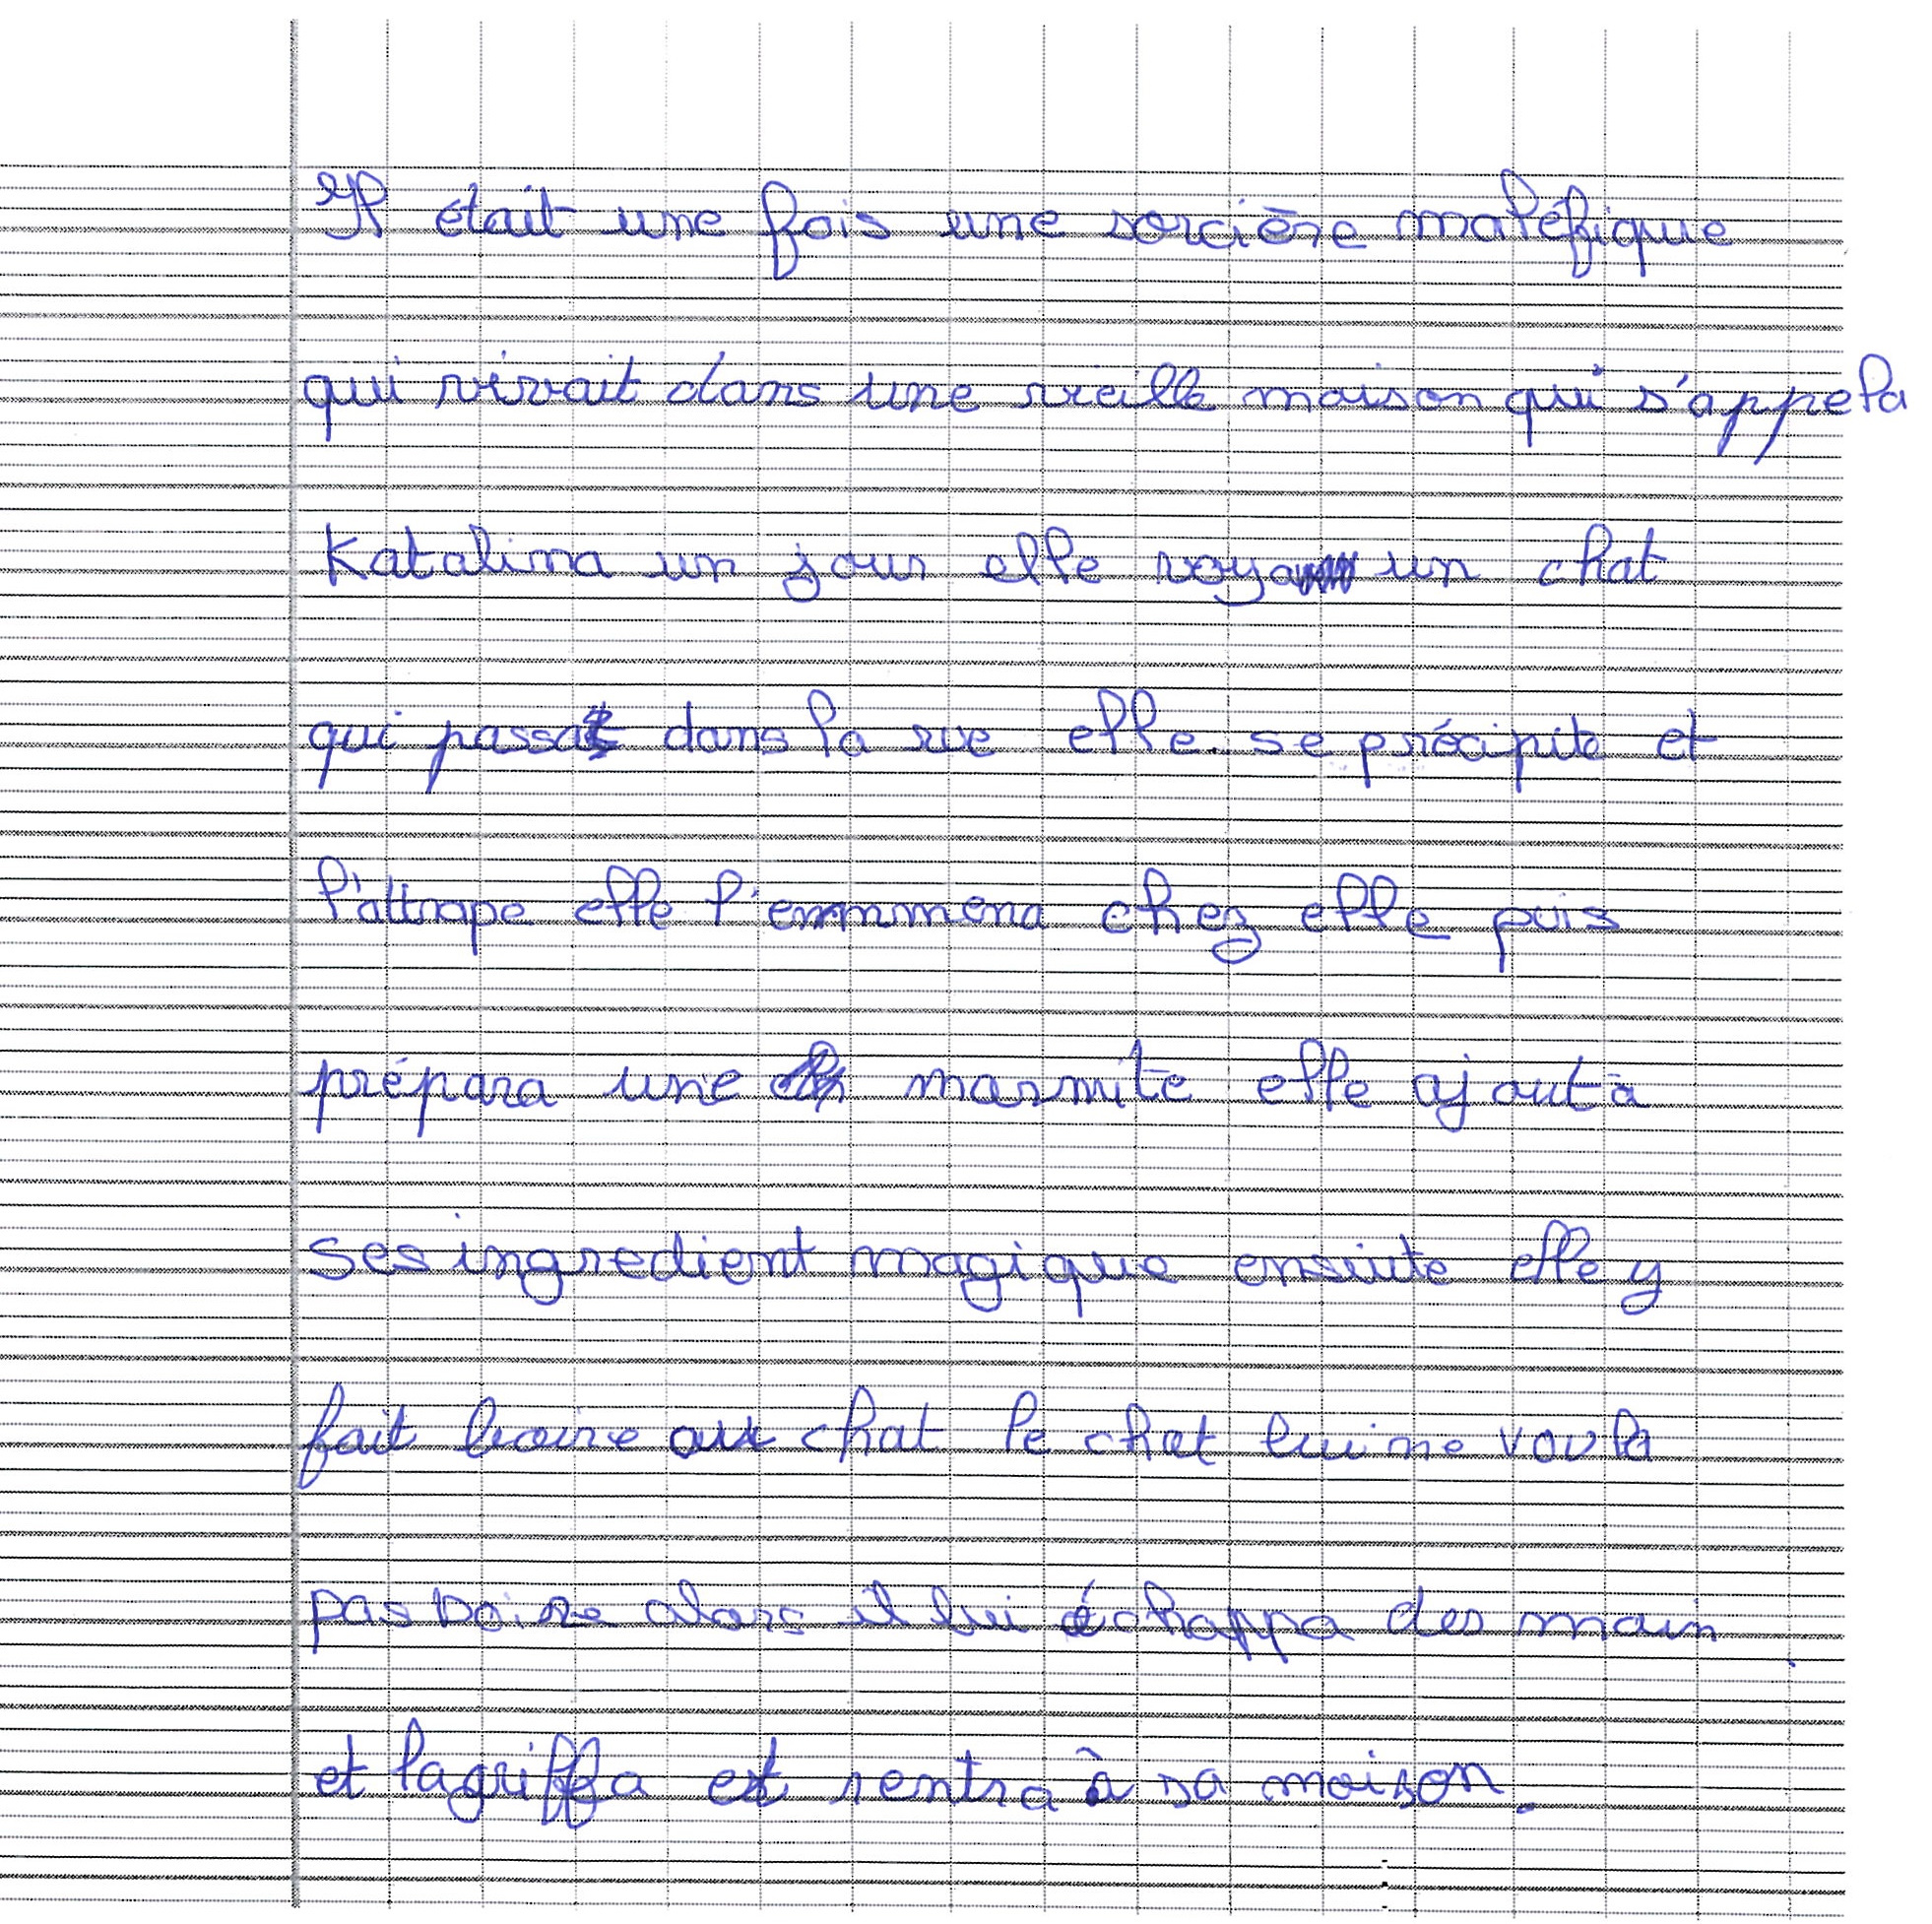 Il était une fois une sorcière maléfique
qui vivait dans une vieille maison qui s'appela
Katalina un jour elle voya un chat
qui passa dans la rue elle se précipite et
l'attrape elle l'emmmena chez elle puis
prépara une marmite elle ajouta
ses ingredient magique ensuite elle y
fait boire au chat le chat lui ne voula
pas boire alors il lui échappa des main
et la griffa et rentra à sa maison.